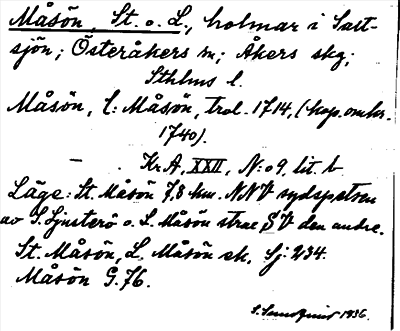 Måsön, St. o. L., holmar i Salt-
sjön; Österåkers sn; Åkers skg;
Sthlms l.
Måsön, l: Måsön, trol. 1714, (kop. omkr.
1740).
— . Kr. A, XXII, N:o 9, lit. b
Läge: St. Måsön 7,8 km. NNV sydspetsen
av S. Ljusterö o. L. Måsön strax SV den andre.
St. Måsön, L. Måsön sk. Sj: 234.
Måsön G. 76.
1936.